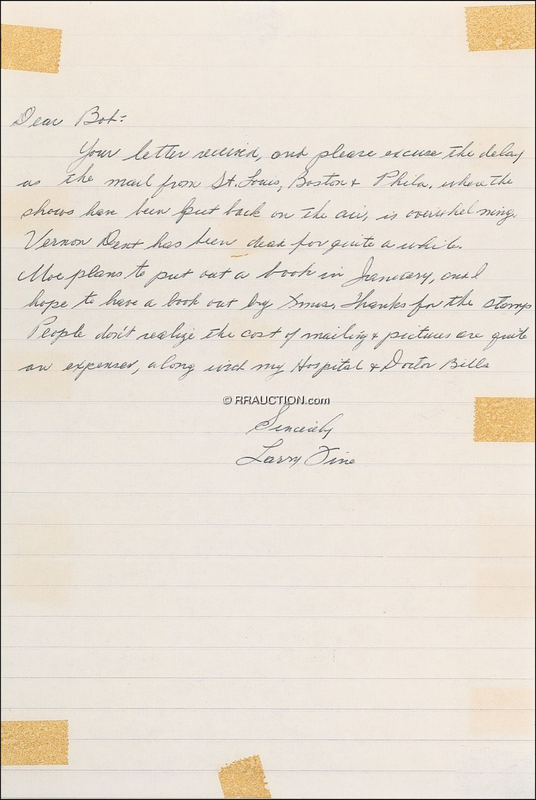 Dear Bob:
Your letter received, and please excuse the delay
as the mail from St. Louis, Boston & Phila, where the
shows have been put back on the air, is overwhelming.
Vernon Dent has been dead for quite a while.
Moe plans to put out a book in January, and I
hope to have a book out by Xmas, Thanks for the stamps
People don't realize the cost of mailing & pictures are quite
an expense, along with my Hospital & Doctor Bills
© RRAUCTION.com
Sincerely
Larry Fine